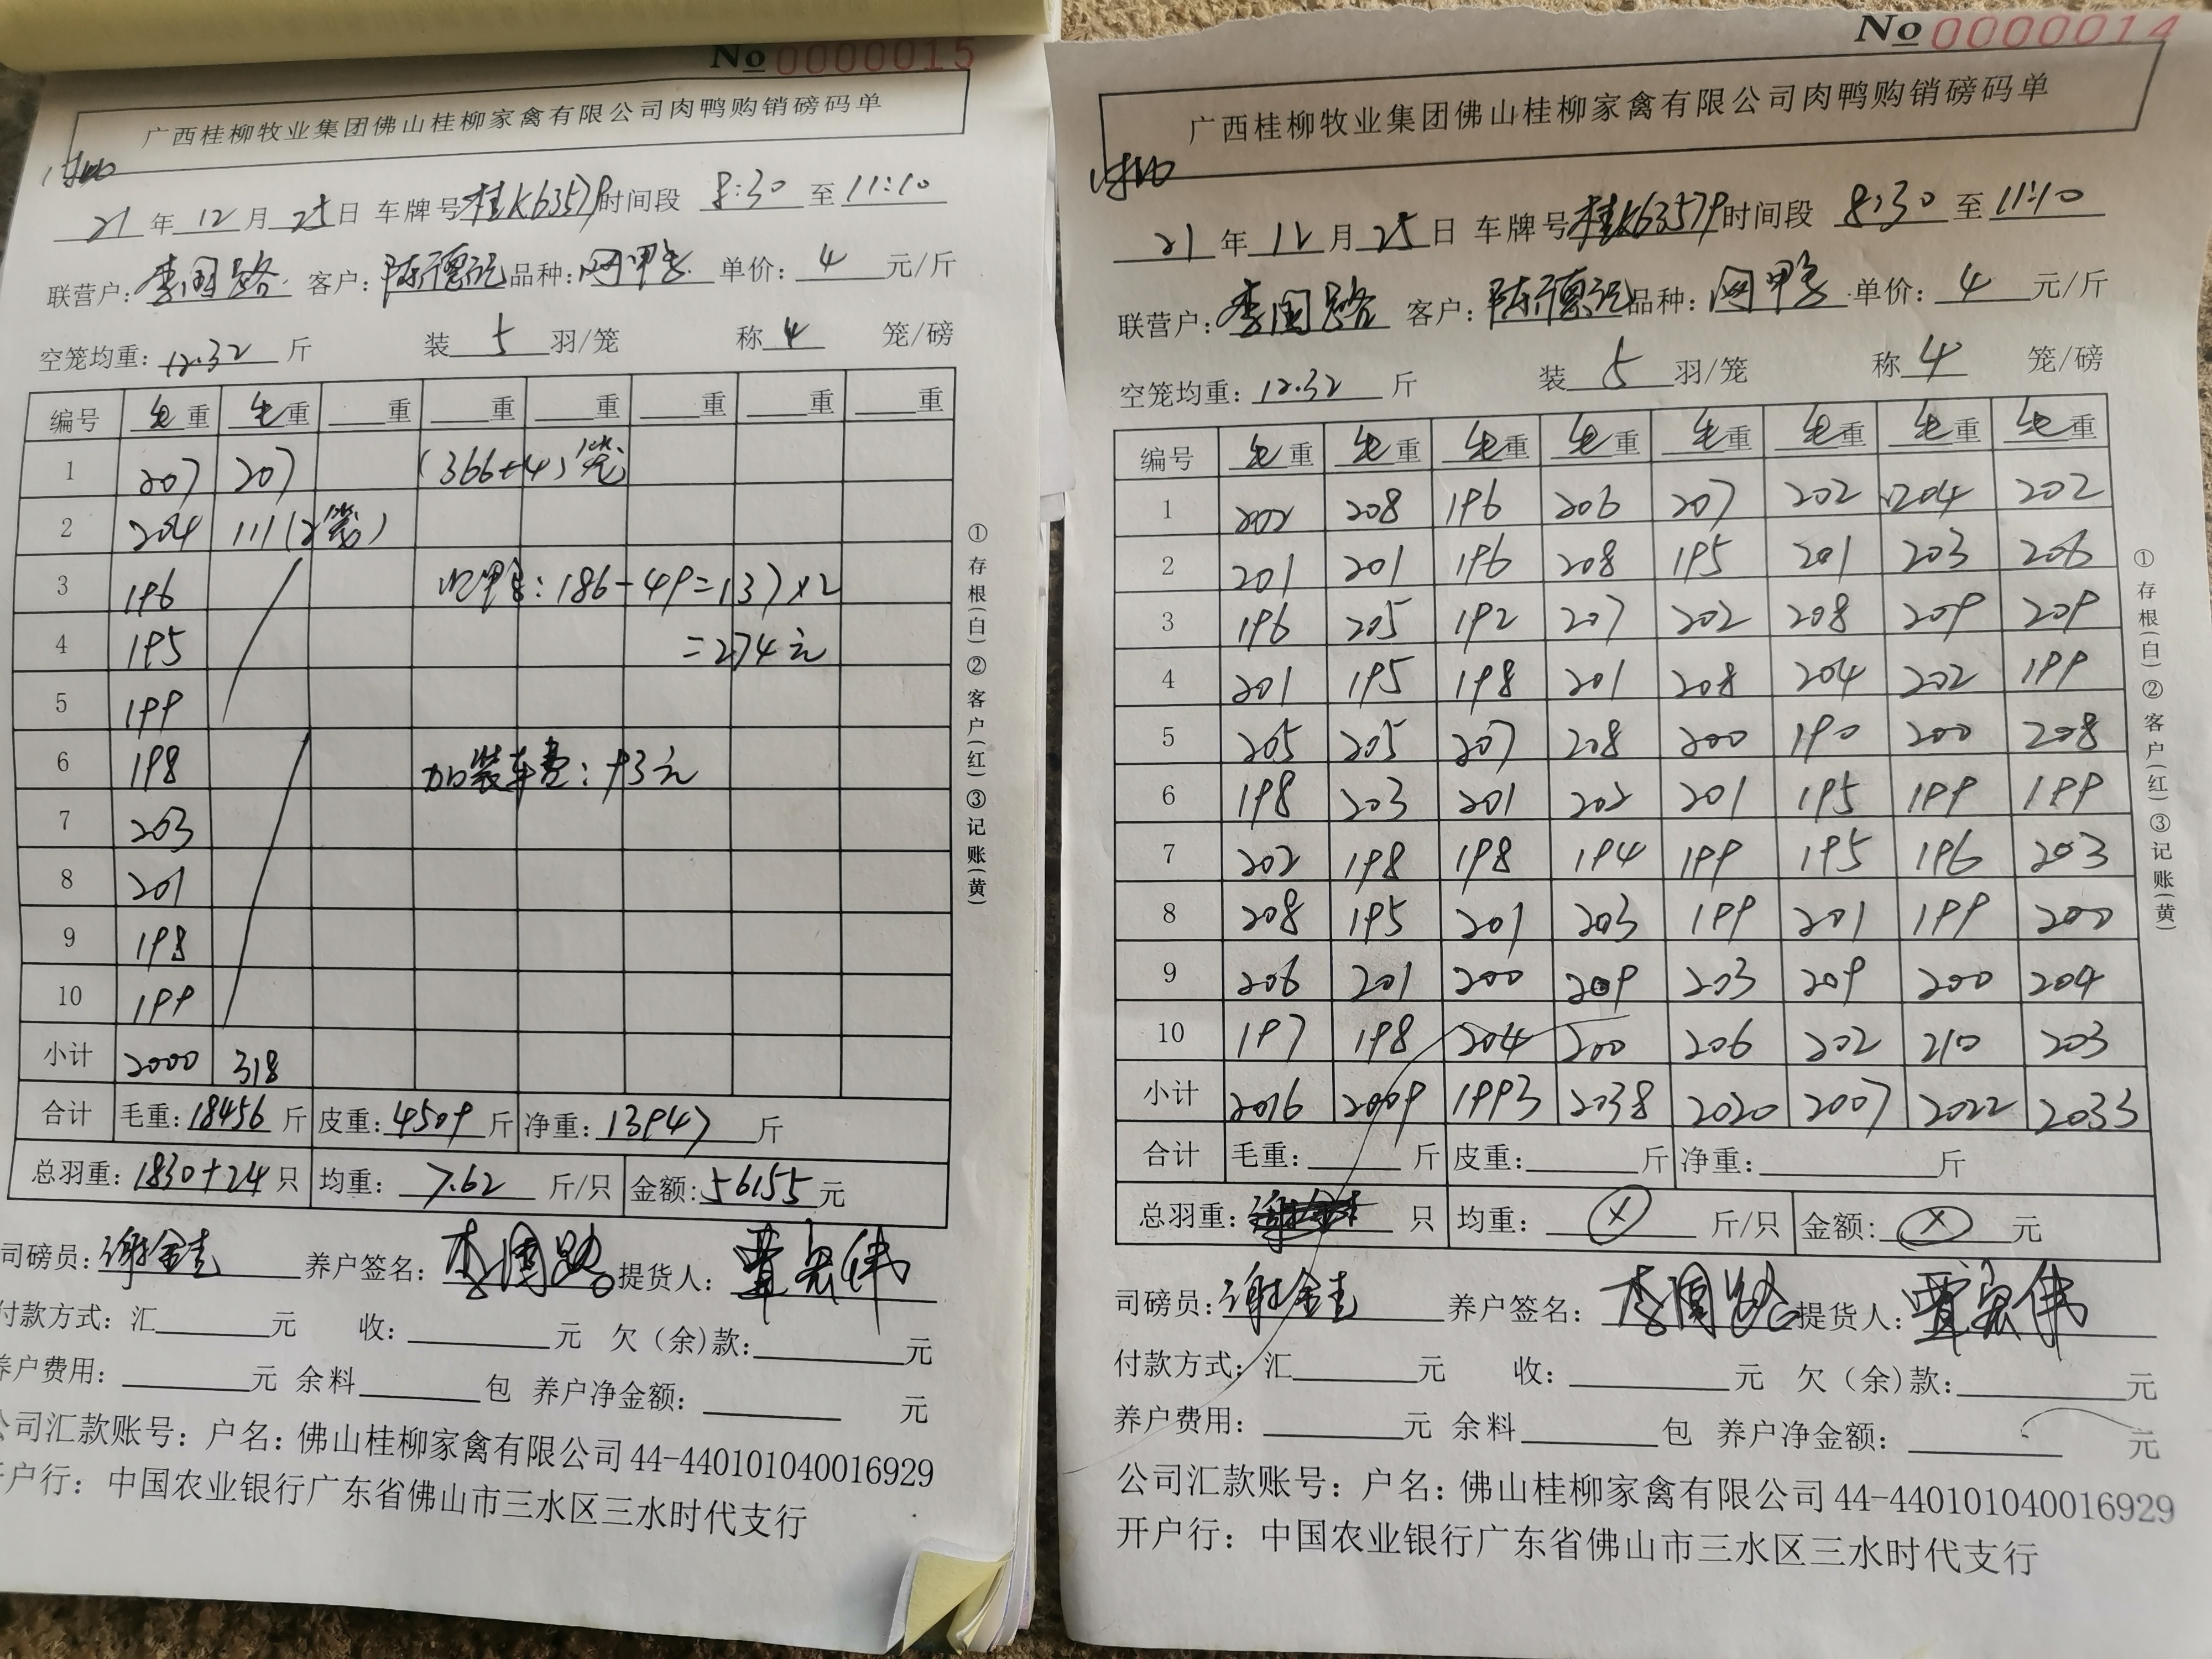 No 0000015
广西桂柳牧业集团佛山桂柳家禽有限公司肉鸭购销磅码单
21 年 12 月 25 日 车牌号 桂K63579 时间段 8:30 至 11:10
联营户: 李国路 客户: 陈德记 品种: 单价: 4 元/斤
空笼均重: 12.32 斤 装 5 羽/笼 称 4 笼/磅
编号 毛重 毛重 重 重 重 重 重 重
1 207 207 (366+4)笼
2 204 111(2笼)
3 196 186-49=137×2
4 195 =274元
5 199
6 198 加装车费: 93元
7 203
8 201
9 198
10 199
小计 2000 318
合计 毛重: 18456 斤 皮重: 4509 斤 净重: 13947 斤
总羽重: 1830+24 只 均重: 7.62 斤/只 金额: 56155 元
司磅员: 谢金圭 养户签名: 李国路 提货人:
付款方式: 汇 元 收: 元 欠(余)款: 元
养户费用: 元 余料 包 养户净金额: 元
公司汇款账号: 户名: 佛山桂柳家禽有限公司 44-440101040016929
开户行: 中国农业银行广东省佛山市三水区三水时代支行
①存根(白)②客户(红)③记账(黄)
No 0000014
广西桂柳牧业集团佛山桂柳家禽有限公司肉鸭购销磅码单
21 年 12 月 25 日 车牌号 桂K63579 时间段 8:30 至 11:10
联营户: 李国路 客户: 陈德记 品种: 单价: 4 元/斤
空笼均重: 12.32 斤 装 5 羽/笼 称 4 笼/磅
编号 毛重 毛重 毛重 毛重 毛重 毛重 毛重 毛重
1 202 208 196 206 207 202 204 202
2 201 201 196 208 195 201 203 206
3 196 205 192 207 202 208 209 209
4 201 195 198 201 208 204 202 199
5 205 205 207 208 200 190 200 208
6 198 203 201 202 201 195 199 199
7 202 198 198 194 199 195 196 203
8 208 195 201 203 199 201 199 200
9 206 201 200 209 203 209 200 204
10 197 198 204 200 206 202 210 203
小计 2016 2009 1993 2038 2020 2007 2022 2033
合计 毛重: 斤 皮重: 斤 净重: 斤
总羽重: 只 均重: ⓧ 斤/只 金额: ⓧ 元
司磅员: 谢金圭 养户签名: 李国路 提货人:
付款方式: 汇 元 收: 元 欠(余)款: 元
养户费用: 元 余料 包 养户净金额: 元
公司汇款账号: 户名: 佛山桂柳家禽有限公司 44-440101040016929
开户行: 中国农业银行广东省佛山市三水区三水时代支行
①存根(白)②客户(红)③记账(黄)